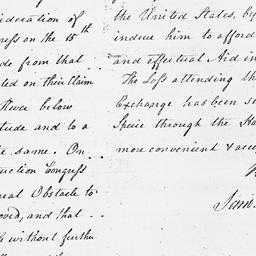 sideration of
ress on the 15th
de from that
ted on their Claim
River below
titude and to a
the same. On
uction Congress
real Obstacle to
oved, and that
le without furthe
the United States, by
induce him to afford
and effectual Aid in
The Loss attending th
Exchange has been se
Specie through the Ha
more convenient & acce
Sam.